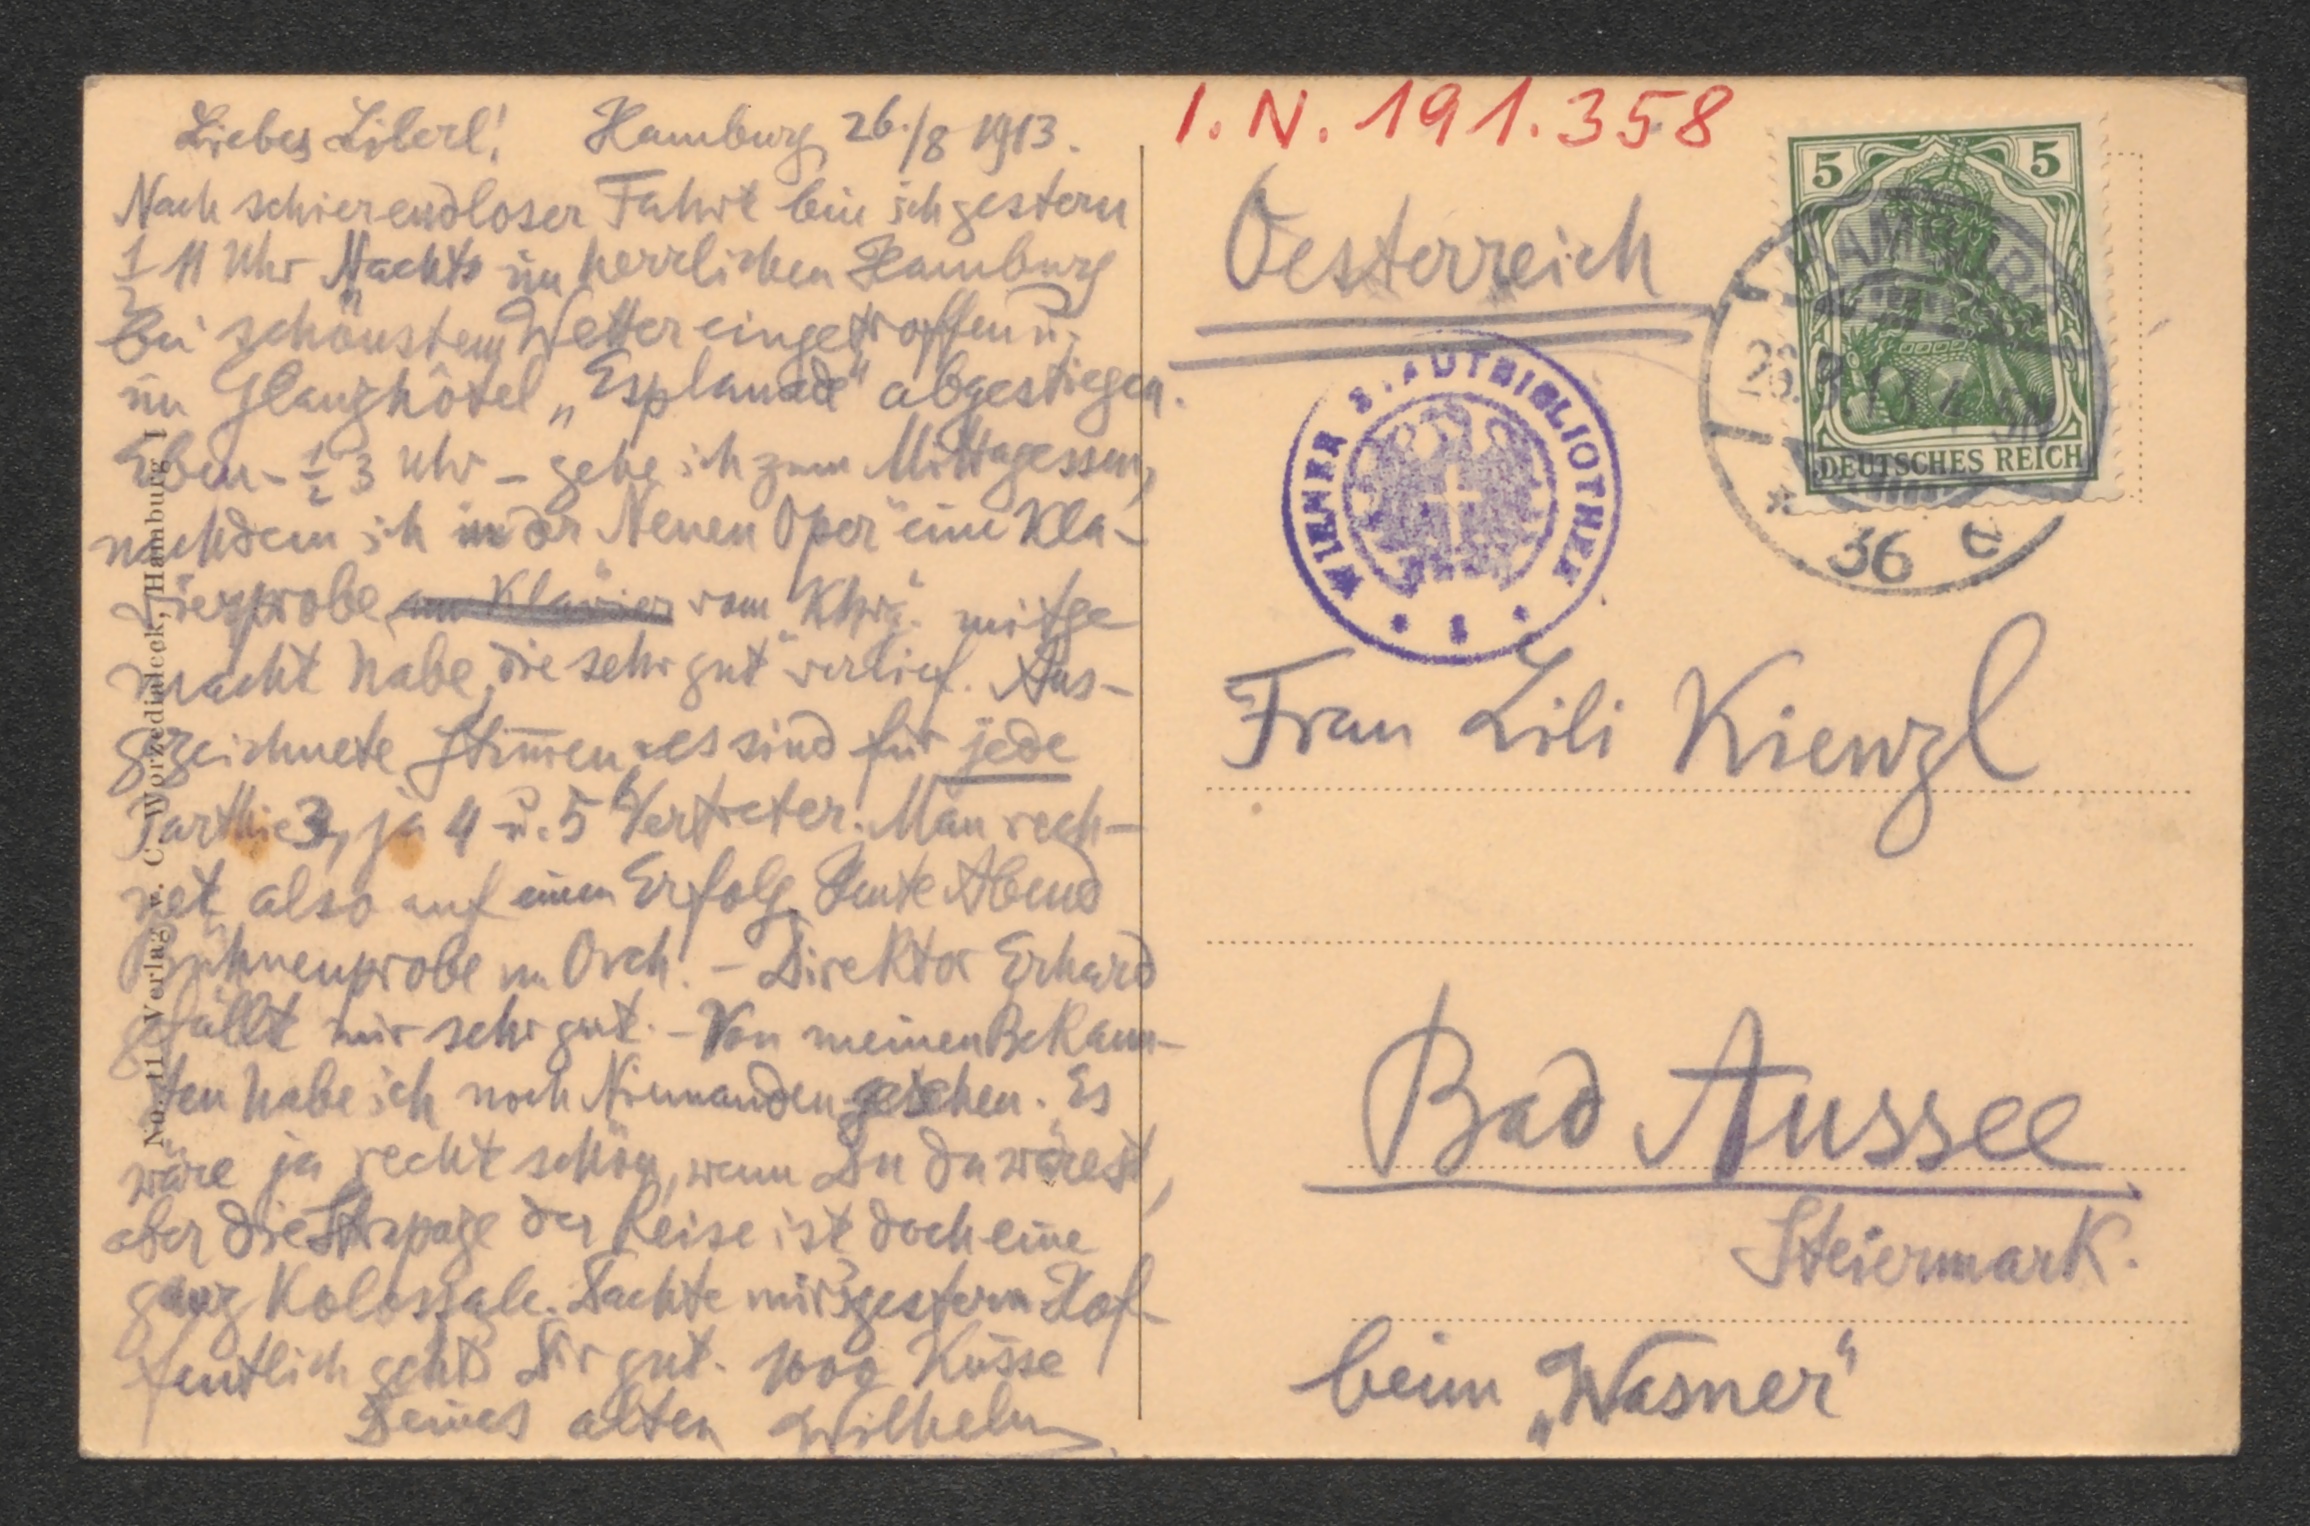 Liebes Liberl! Hamburg, 26./8 1913.
Nach schier endloser Fahrt bin ich gestern
½ 11 Uhr Nachts im herrlichen Hamburg
bei schönstem Wetter eingetroffen u.
im Glanzhôtel „Esplanade" abgestiegen.
Eben - ½ 3 Uhr - gehe ich zum Mittagessen,
nachdem ich in der Neuen Oper eine Kla-
vierprobe am Klavier vom "Khr." mitge
macht habe, die sehr gut verlief. Aus-
gezeichnete Stim̅en - es sind für jede
Parthie 3, ja 4 u. 5 Vertreter. Man rech-
net also auf einen Erfolg. Heute Abend
Bühnenprobe m. Orch. - Direktor Erhard
gefällt mir sehr gut. - Von meinen Bekann-
ten habe ich noch Niemanden gesehen. Es
wäre ja recht schön, wenn Du da wärest,
aber die Strapaze der Reise ist doch eine
ganz Kolossale. Dachte mir's gestern. Hof-
fentlich geht's Dir gut. 1000 Küsse
Deines alten Wilhelm
No. 11 Verlag v. C. Worzedialeck, Hamburg 1
I.N. 191.358
Oesterreich
5 5
DEUTSCHES REICH
HAMBURG
26.8.13. 4-5N
* 36 c
WIENER STADTBIBLIOTHEK
Frau Lili Kienzl
Bad Aussee
Steiermark.
beim „Wasner"